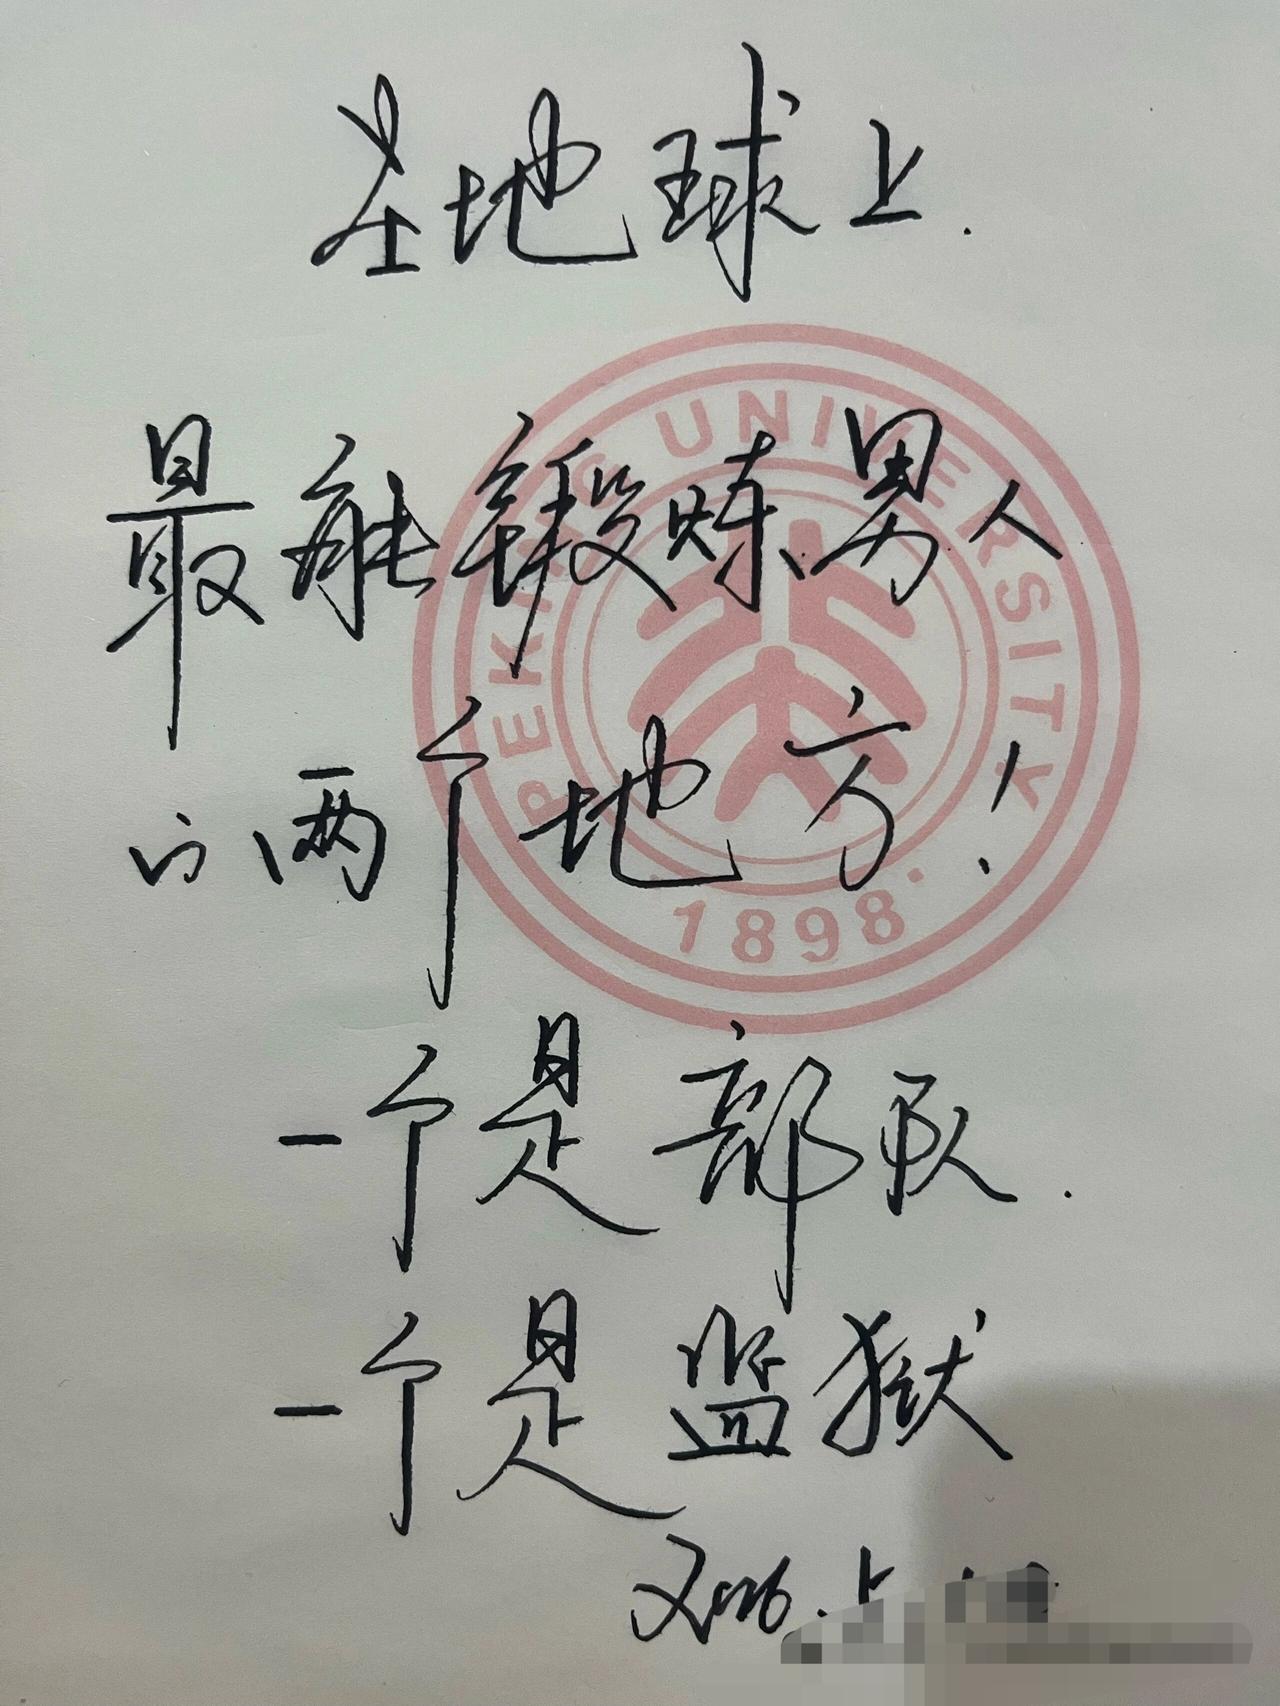 在地球上.
最能锻炼男人
的两个地方!
一个是部队.
一个是监狱
PEKING UNIVERSITY
1898